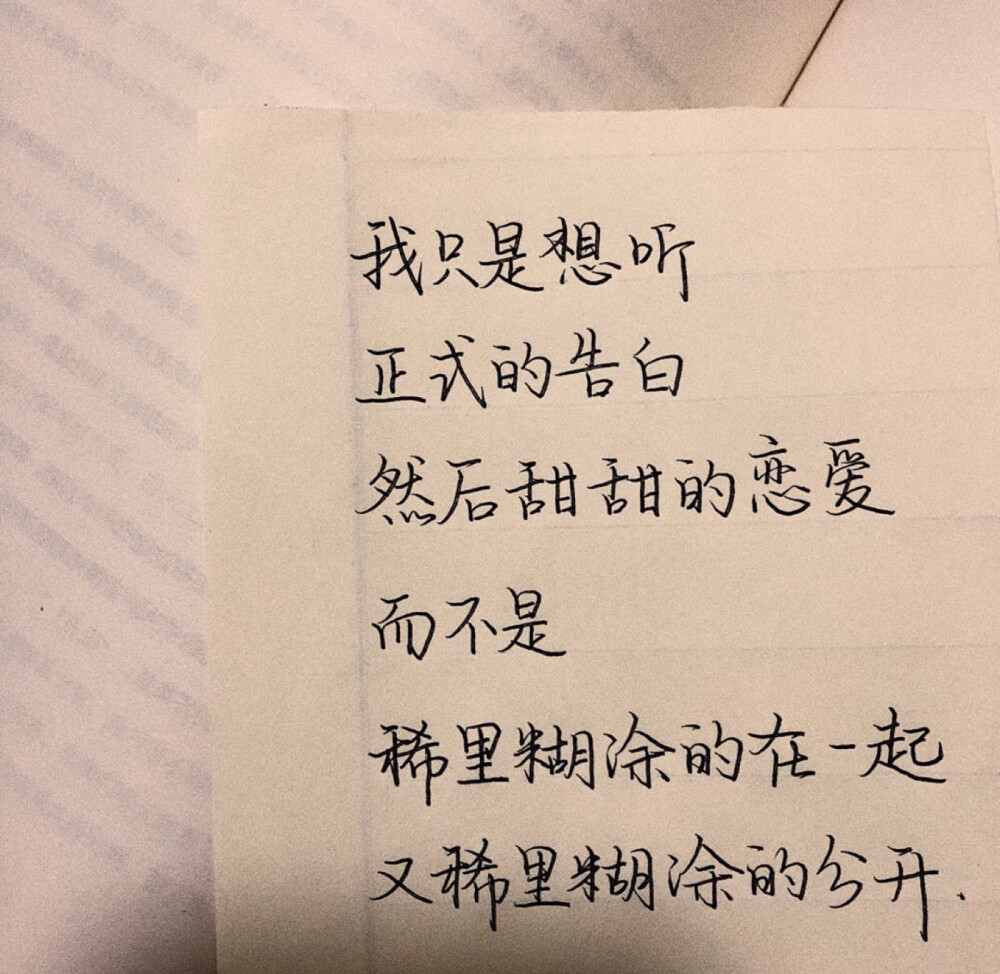 我只是想听
正式的告白
然后甜甜的恋爱
而不是
稀里糊涂的在一起
又稀里糊涂的分开.